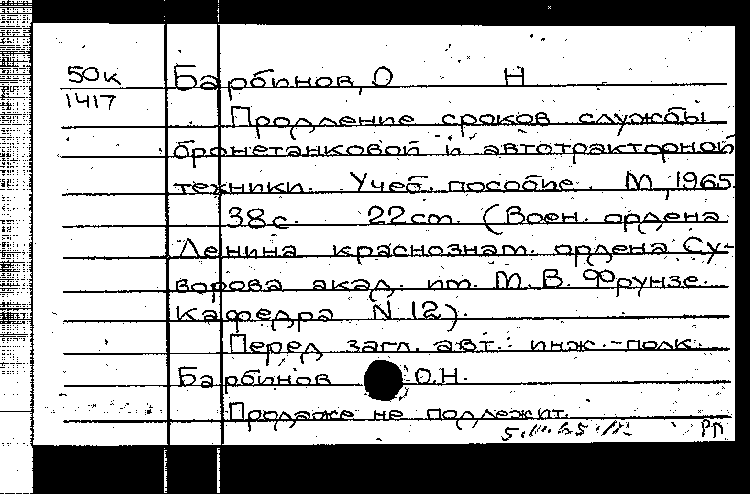 50к
1417
Барбинов, О Н
Продление сроков службы
бронетанковой и автотракторной
техники. Учеб. пособие. М, 1965
38с. 22ст. (Воен. ордена
Ленина краснознам. ордена Су-
ворова акад. им. М. В. Фрунзе.
Кафедра N 12).
Перед загл. авт.: инж.-полк.
Барбинов О.Н.
Продаже не подлежит.
рп